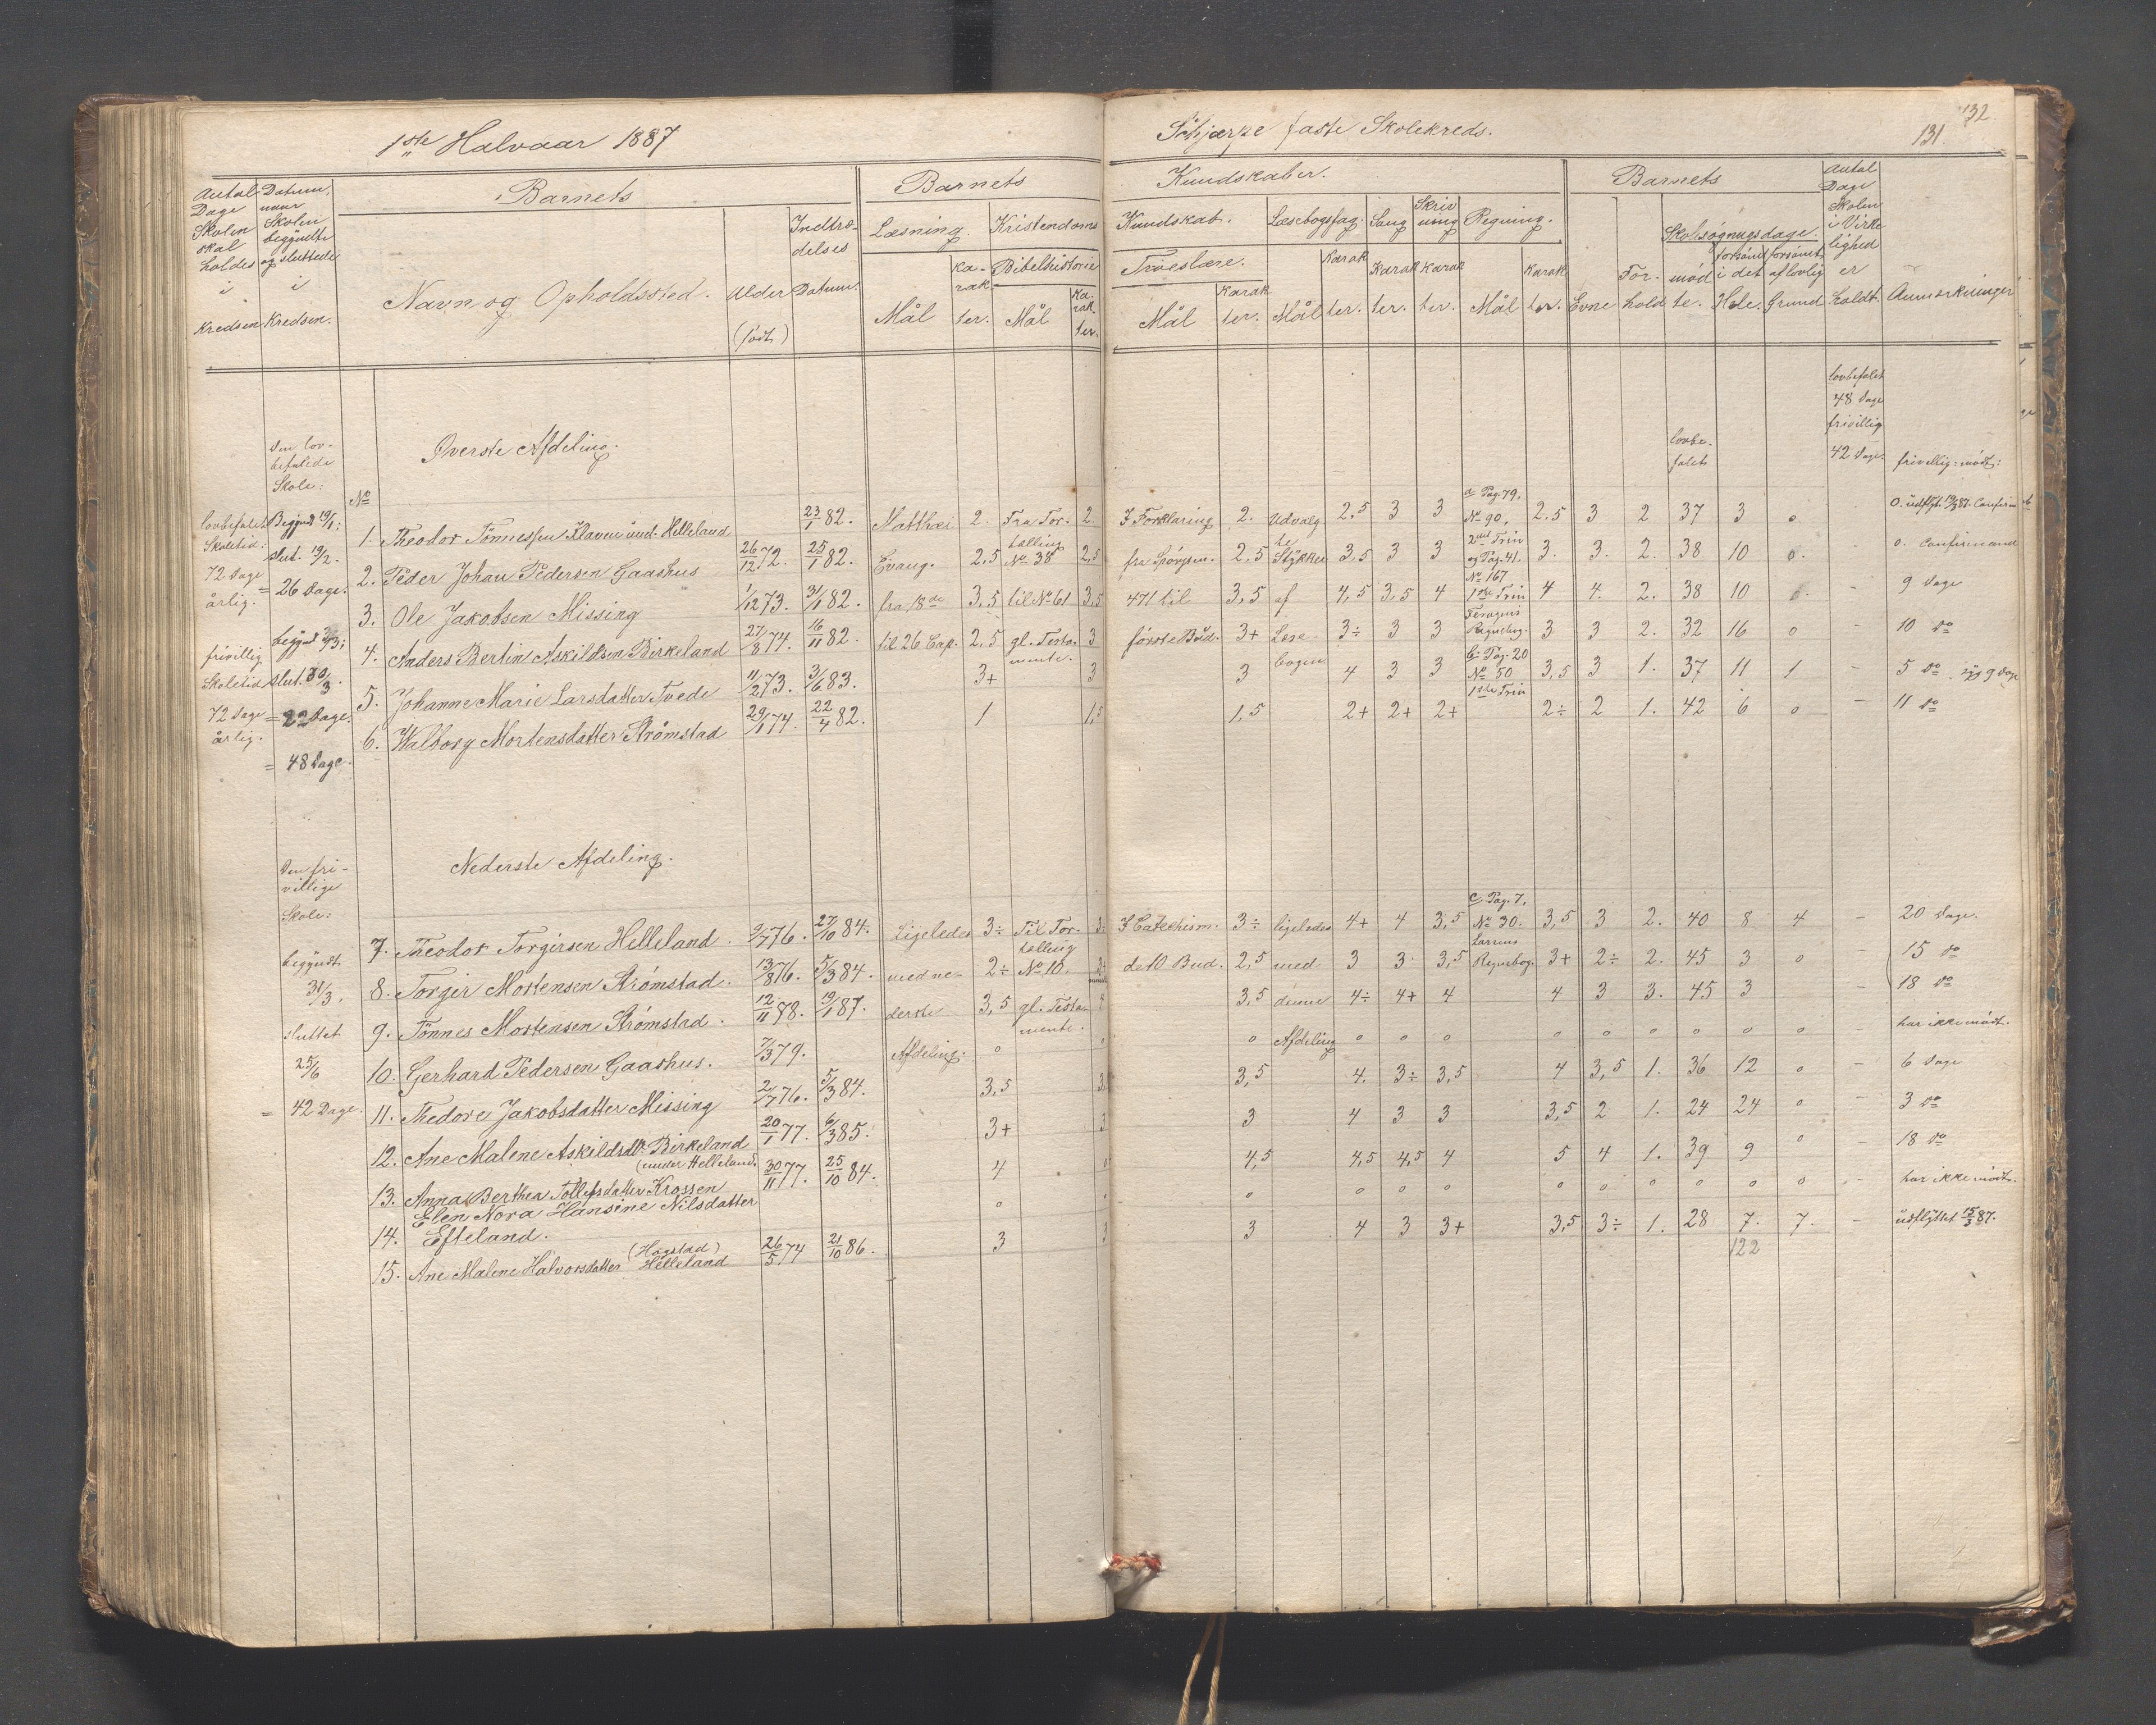 1ste Halvaar 1887
Schjærpe faste Skolekreds.
132.
131
Antal Dage Skolen skal holdes i Kredsen
Datum, naar Skolen begyndte og sluttede i Kredsen.
Barnets
Navn og Opholdssted.
Alder (født)
Indtrædelses Datum.
Barnets
Læsning.
Mål
Karakter.
Kristendoms
Bibelhistorie
Mål
Karakter.
Kundskaber.
Kundskab.
Troeslære.
Mål
Karakter.
Læsebogsfag.
Mål
Karakter.
Sang
Karakter.
Skrivning
Karakter.
Regning.
Mål
Karakter.
Barnets
Evne
Forhold
Skolesøgnugsdage.
mødte.
forsømt i det Hele.
forsømt af lovlig Grund
Antal Dage Skolen i Virkelighed er holdt.
Anmærkninger
lovbefalet
48 Dage
frivillig
42 Dage
lovbefalet
frivillig mødt:
Den lovbefalede Skole:
Øverste Afdeling.
No
lovbefalet Skoletid: 72 Dage årlig.
Begyndt 19/1;
slut. 19/2.
= 26 Dage.
frivillig Skoletid 72 Dage årlig.
begyndt 3/3;
slut. 30/3.
= 22 Dage.
= 48 Dage
1. Theodor Tönnessen Klaven und. Helleland 23/1 82. Matthæi 2. Fra For- 2. I Forklaring 2. Udvalg 2,5 3 3 a Pag. 79. No 90. 2,5 3 2 37 3 0 0. udflyt. 19/2 87. Confirm
2. Peder Johan Pedersen Gaashus 26/12 72. 25/1 82. Evang. 2,5 tælling No 38 2,5 fra Spörgsm. 2,5 te Stykker 3,5 3 3 2det Trin og Pag. 41. 3. 3. 2. 38 10 0. 0. Confirmand
3. Ole Jakobsen Missing 1/12 73. 31/1 82. fra 18de 3,5 til No 61 3,5 471 til 3,5 af 4,5 3,5 4 No 167 1ste Trin 4 4. 2. 38 10 0. 9 Dage
4. Anders Bertin Askildsen Birkeland 27/8 74. 16/11 82. til 26 Cap. 2,5 gl. Testa- 3 förste Bud. 3+ Læse- 3÷ 3 3 Regnebog. 3 3 2. 32 16 0 10 do
5. Johanne Marie Larsdatter Tvede 11/2 73. 3/6 83. 3+ mente. 3 3 bogen 4 3 3 b: Pag. 20 No 50 3,5 3 1. 37 11 1 5 do
6. Walborg Mortensdatter Strömstad 29/1 74. 22/4 82. 1 1,5 1,5 2+ 2+ 2+ 1ste Trin 2÷ 2 1. 42 6 0 11 do
Den frivillige Skole:
begyndt
31/3.
sluttet
25/6
= 42 Dage.
Nederste Afdeling.
7. Theodor Torgirsen Helleland. 2/7 76. 27/10 84. Ligeledes 3÷ Til For- 3 I Catechism. 3÷ ligeledes 4+ 4 3,5 C. Pag. 7. No 30. 3,5 3 2. 40 8 4 20 Dage.
8. Torgir Mortensen Strömstad. 13/8 76. 5/3 84. med ne- 2÷ tælling No 10. de 10 Bud. 2,5 med 3 3 3,5 Larsens Regnebog. 3+ 2÷ 2. 45 3 0 15 do
9. Tönnes Mortensen Strömstad. 12/11 78. 19/1 87. derste 3,5 gl. Testa- 4 3,5 denne 4÷ 4+ 4 4 3 3. 45 3 18 do
10. Gerhard Pedersen Gaashus. 7/3 79. Afdeling. 0 mente. 0 0 Afdeling 0 0 0 0 0 0 0 0 0 har ikke mødt.
11. Thedore Jakobsdatter Missing 2/7 76. 5/3 84. 3,5 3,5 4. 3÷ 3,5 4 3,5 1. 36 12 0 6 Dage
12. Ane Malene Askildsdtr. Birkeland 20/1 77. 6/3 85. 3+ 3 3 4 3 3 3,5 2 1. 24 24 0 3 do
(under Helleland.
13. Anna Berthea Tollefsdatter Krossen 30/11 77. 25/10 84. 4 4,5 4,5 4,5 4 5 4 1. 39 9 0 18 do
Elen Nora Hansine Nilsdatter
14. Efteland. 0 0 0 0 0 0 0 0 0 0 0 0 har ikke mødt.
15. Ane Malene Halvorsdatter (Hogstad) Helleland 26/5 74 21/10 86. 3 3 3 4 3 3+ 3,5 3÷ 1. 28 7. 7. udflyttet 15/3 87.
122